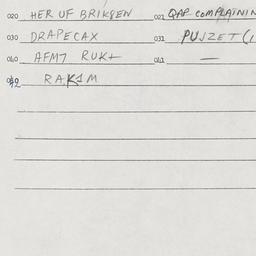 020 HER UF BRIKSEN 021 QAP COMPLAININ
030 DRAPECAX 031 PUJZET (1
040 AFM7 RUKt 041 —
RAKSM